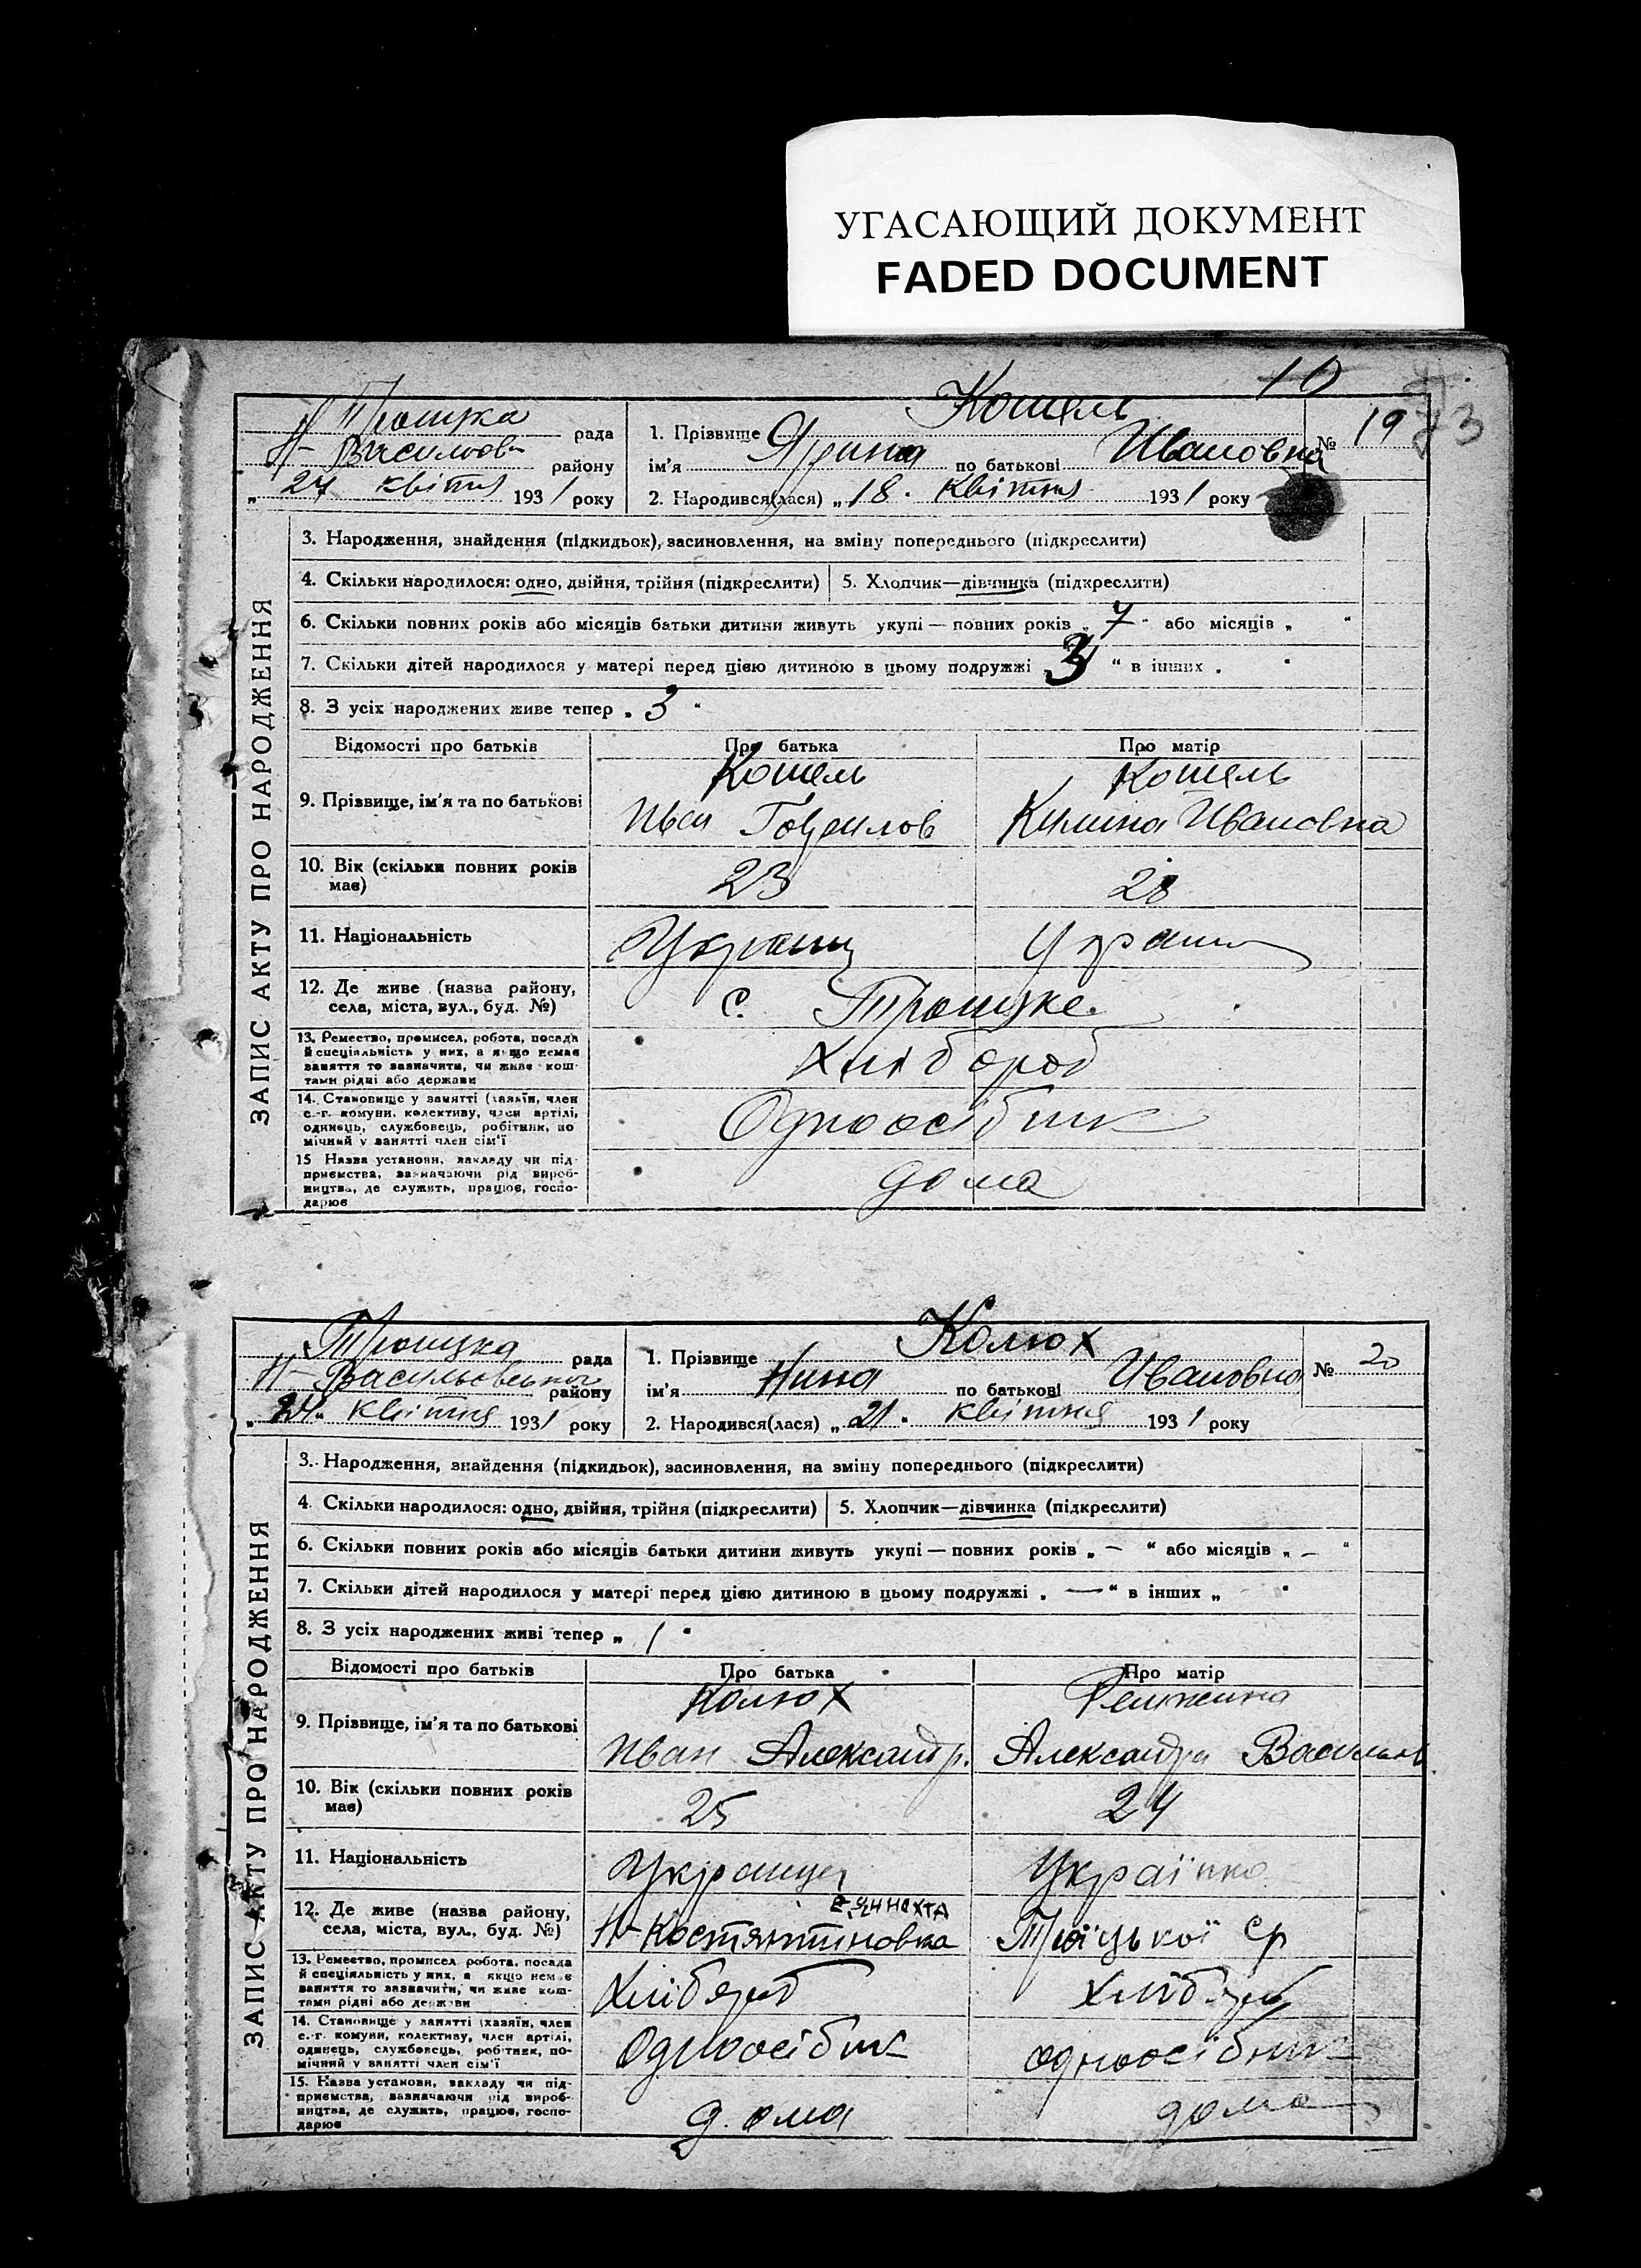 УГАСАЮЩИЙ ДОКУМЕНТ
FADED DOCUMENT
10
73
Троицка рада
Н-Васильов району
"27 квітня 1931 року
1. Прізвище Кошель
ім'я Ярина по батькові Ивановна
2. Народився(лася) „18" квітня 1931 року
№ 19
ЗАПИС АКТУ ПРО НАРОДЖЕННЯ
3. Народження, знайдення (підкидьок), засиновлення, на зміну попереднього (підкреслити)
4. Скільки народилося: одно, двійня, трійня (підкреслити) 5. Хлопчик—дівчинка (підкреслити)
6. Скільки повних років або місяців батьки дитини живуть укупі — повних років „7" або місяців „ "
7. Скільки дітей народилося у матері перед цією дитиною в цьому подружжі „3" в інших „ "
8. З усіх народжених живе тепер „3"
Відомості про батьків Про батька Про матір
9. Прізвище, ім'я та по батькові
Кошель
Иван
Кошель
Килина Ивановна
10. Вік (скільки повних років має)
23
28
11. Національність
12. Де живе (назва району, села, міста, вул., буд. №)
с. Троицке
13. Ремество, промисел, робота, посада
й спеціяльність у них, а якщо немає
заняття то зазначити, чи живе кош-
тами рідні або держави
Хлібороб
14. Становище у занятті (хазяїн, член
с.-г. комуни, колективу, член артілі,
одинець, службовець, робітник, по
мічний у занятті член сім'ї
Одноосібник
15 Назва установи, закладу чи під-
приємства, зазначаючи рід вироб-
ництва, де служить, працює, госпо-
дарює
дома
Троицка рада
Н-Васильовського району
"24" квітня 1931 року
1. Прізвище Колюх
ім'я Нина по батькові Ивановна
2. Народився(лася) „21" квітня 1931 року
№ 20
ЗАПИС АКТУ ПРО НАРОДЖЕННЯ
3. Народження, знайдення (підкидьок), засиновлення, на зміну попереднього (підкреслити)
4. Скільки народилося: одно, двійня, трійня (підкреслити) 5. Хлопчик—дівчинка (підкреслити)
6. Скільки повних років або місяців батьки дитини живуть укупі — повних років „ – " або місяців „ – "
7. Скільки дітей народилося у матері перед цією дитиною в цьому подружжі „ — " в інших „ "
8. З усіх народжених живі тепер „ 1 "
Відомості про батьків Про батька Про матір
9. Прізвище, ім'я та по батькові
Колюх
Иван Александр.
Александра Васильев
10. Вік (скільки повних років має)
25
24
11. Національність
Украинец
Українка
12. Де живе (назва району, села, міста, вул., буд. №)
Н-Костянтиновка
Троїцької ср
13. Ремество, промисел робота, посада
й спеціяльність у них, а якщо немає
заняття то зазначити, чи живе кош-
тами рідні або держави
Хлібороб
хлібороб
14. Становище у занятті (хазяїн, член
с.-г. комуни, колективу, член артілі,
одинець, службовець, робітник, по-
мічний у занятті член сім'ї
Одноосібник
одноосібник
15. Назва установи, закладу чи під-
приємства, зазначаючи рід вироб-
ництва, де служить, працює, госпо-
дарює
дома
дома